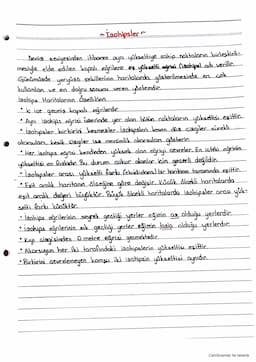 ~ İzohipsler ~
Deniz seviyesinden itibaren aynı yükseltiye sahip noktaların birleştiril-
mesiyle elde edilen kapalı eğrilere eş yükselti eğrisi (izohips) adı verilir.
Günümüzde yeryüzü şekillerinin haritalarda gösterilmesinde en çok
kullanılan ve en doğru sonucu veren yöntemdir.
İzohips Haritalarının Özellikleri
* İç içe geçmiş kapalı eğrilerdir
* Aynı izohips eğrisi üzerinde yer alan bütün noktaların yükseltisi eşittir.
* İzohipsler birbirini kesmezler
akarsuları, kesik çizgiler ise mevsimlik akarsuları gösterir
* Her izohips eğrisi kendinden yüksek olan eğriyi çevreler. En içteki eğrinin
yükseltisi en fazladır. Bu durum çukur alanlar için geçerli değildir.
* İzohipsler arası yükselti farkı (Eküidistans) bir haritanın tamamında eşittir.
* Eşit aralık haritanın ölçeğine göre değişir. Küçük ölçekli haritalarda
eşit aralık değeri büyüktür. Büyük ölçekli haritalarda izohipsler arası yük-
selti farkı küçüktür.
* İzohips eğrilerinin seyrek geçtiği yerler eğimin az olduğu yerlerdir.
* İzohips eğrilerinin sık geçtiği yerler eğimin fazla olduğu yerlerdir.
* Kıyı çizgisinden 0 metre eğrisi geçmektedir
* Akarsuyun her iki tarafındaki izohipslerin yükseltisi eşittir.
* Birbirini çevrelemeyen komşu iki izohipsin yükseltisi aynıdır.
CamScanner ile tarandı